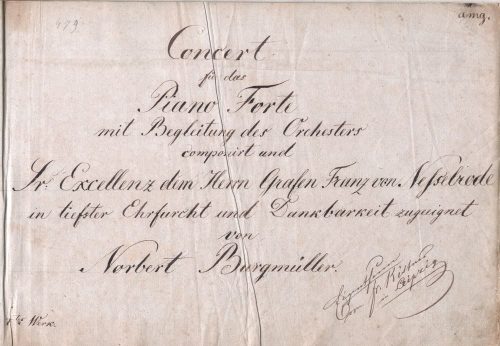 479.
amg.
Concert
für das
Piano Forte
mit Begleitung des Orchesters
componirt und
Sr. Excellenz dem Herrn Grafen Franz von Nesselrode
in tiefster Ehrfurcht und Dankbarkeit zugeeignet
von
Norbert Burgmüller.
Eigenthum
von Fr. Kistner
in Leipzig
1tes Werk.